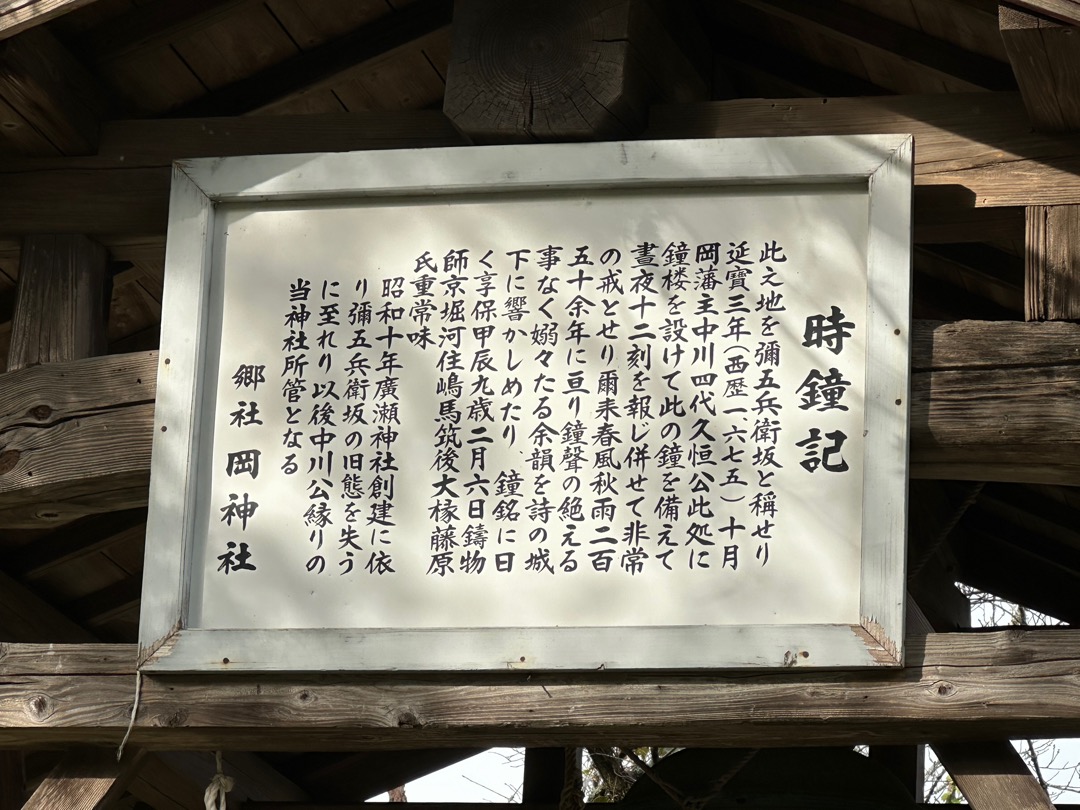 時鐘記
此之地を彌五兵衛坂と稱せり
延寶三年(西歴一、六七五)十月
岡藩主中川四代久恒公此処に
鐘楼を設けて此の鐘を備えて
晝夜十二刻を報じ併せて非常
の戒とせり爾来春風秋雨二百
五十余年に亘り鐘聲の絶える
事なく嫋々たる余韻を詩の城
下に響かしめたり 鐘銘に曰
く享保甲辰九歳二月六日鑄物
師京堀河住嶋馬筑後大椽藤原
氏重常味
昭和十年廣瀬神社創建に依
り彌五兵衛坂の旧態を失う
に至れり以後中川公縁りの
当神社所管となる
郷社岡神社